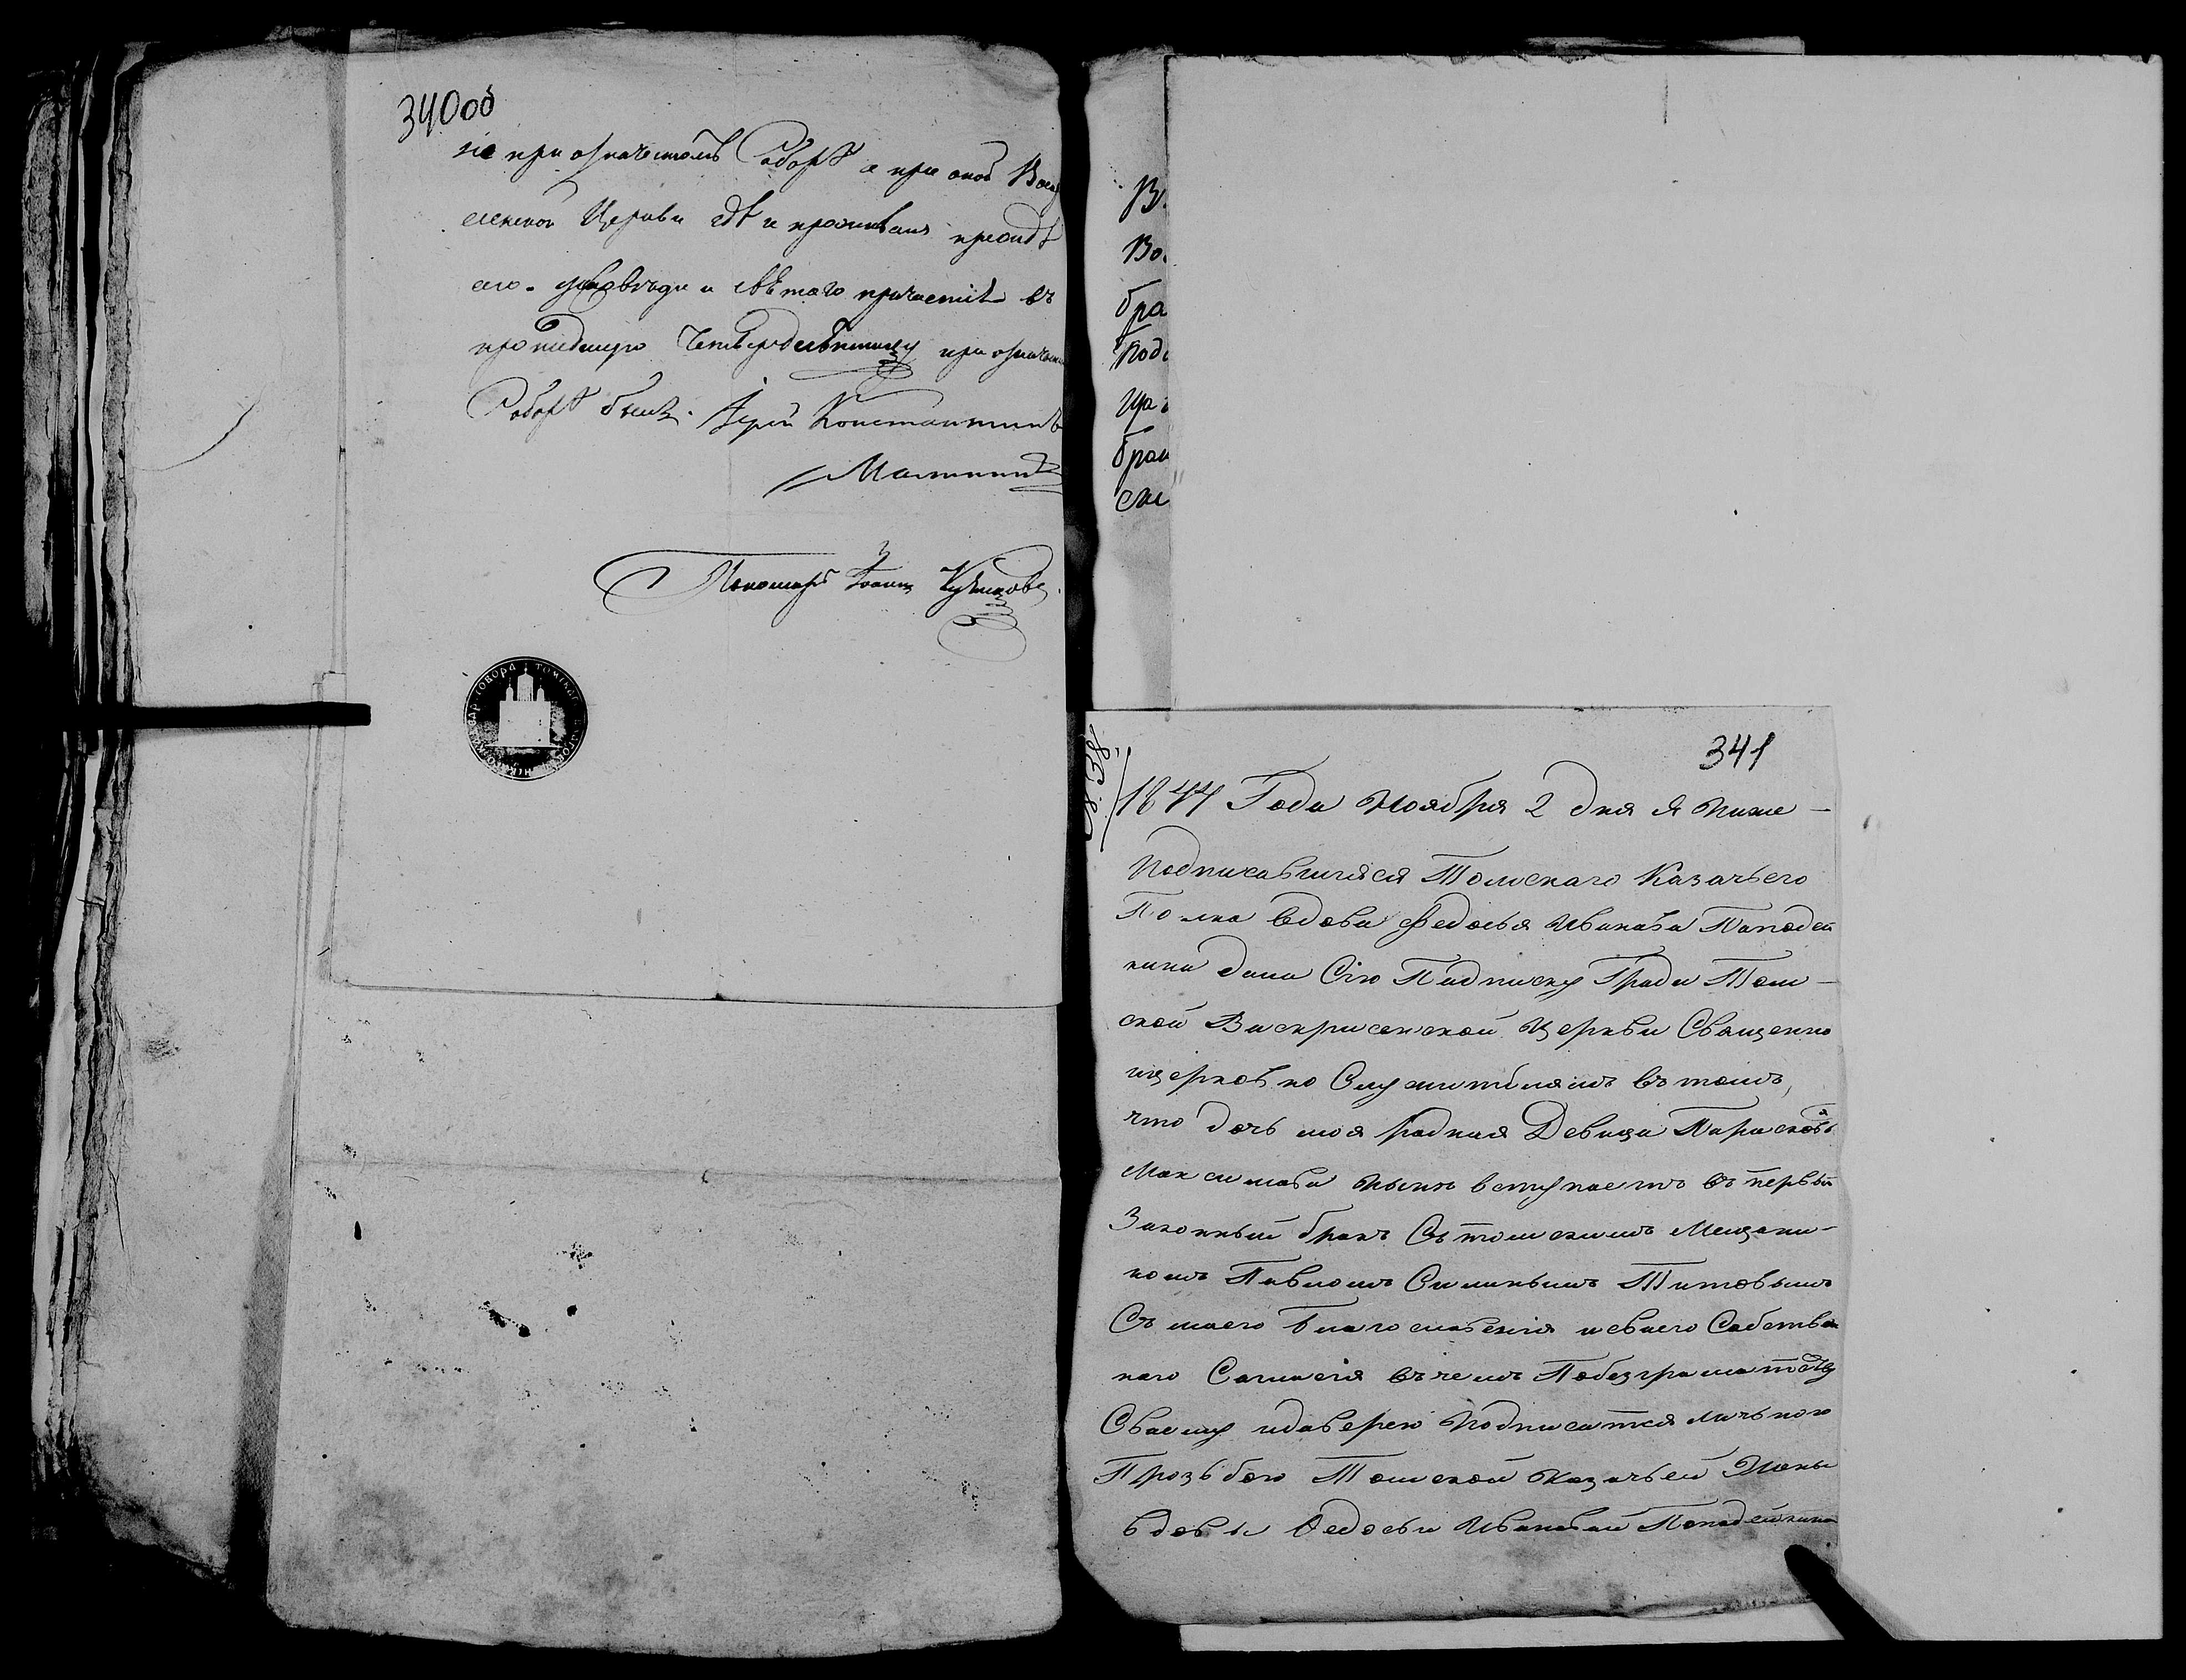 340об
не при означенномъ Соборѣ а при оной Воскр
сенской Церкви гдѣ и проживаетъ
его. исповѣди и святаго причастія въ
прошедшую Четыредесятницу при означен
Соборѣ былъ. Іерей Константинъ
Пономарь Іоаннъ
В
Во
бра
Подъ
ща
брак
ски
341
1844 Года Ноября 2 дня я ниже-
подписавшаяся Томскаго Казачьего
Полка вдова Федосья Иванова Паподей
кина дала Сію Падписку Града Том-
ской Васкрисенской Церкви Священно
церковно Служителямъ въ томъ,
что дочь моя радная Девица Параскавья
Максимава нынѣ вступаетъ въ первый
Законный бракъ Съ томскимъ Мещани-
номъ Павломъ Силинымъ Титовымъ
Съ маего Благославенія исваего Собствен
наго Согласія въ чемъ Побезграматству
Сваему идаверею подписатся личьною
Прозьбою Томской казачьей Жоны
вдовы Федосьи Ивановай Поподейкина